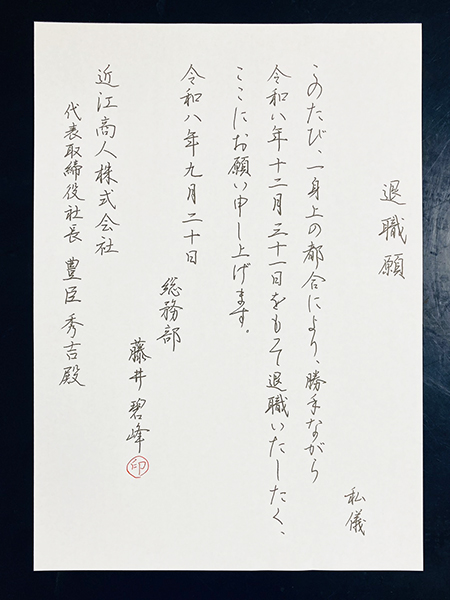 退職願
私儀
このたび、一身上の都合により、勝手ながら
令和八年十二月三十一日をもって退職いたしたく、
ここにお願い申し上げます。
令和八年九月二十日
総務部
藤井碧峰 印
近江商人株式会社
代表取締役社長 豊臣秀吉殿